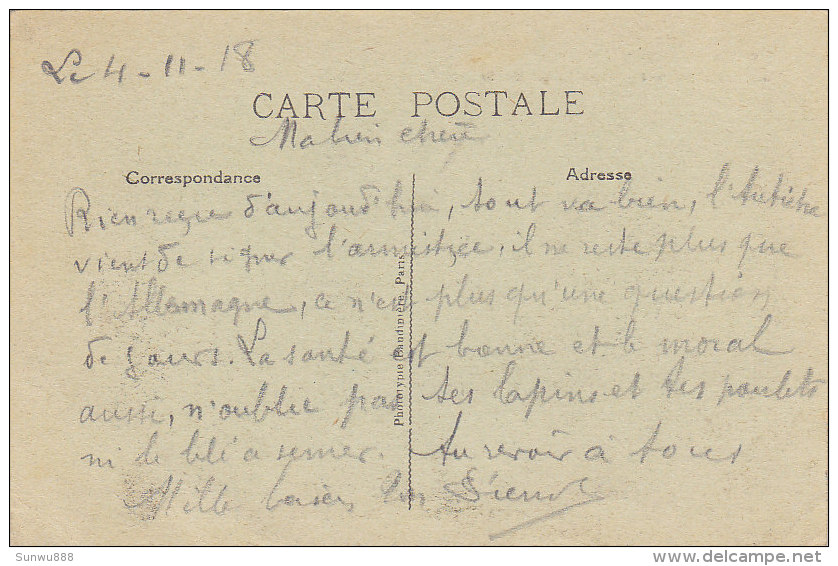 Le 4-11-18
CARTE POSTALE
Ma bien chérie
Correspondance
Adresse
Rien reçu d'aujourd'hui, tout va bien, l'Autriche
vient de signer l'armistice, il ne reste plus que
l'Allemagne, ce n'est plus qu'une question
de jours. La santé est bonne et le moral
aussi, n'oublie pas tes lapins et tes poulets
ni le blé a semer. Au revoir à tous
Mille baisers
Phototypie Baudinière, Paris
Sunwu888
delcampe.net